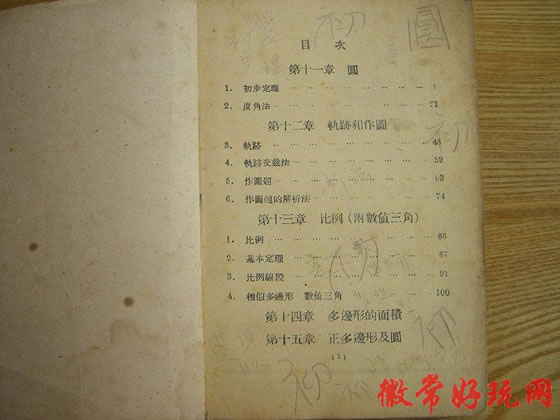 初
圓
目 次
第十一章 圓
1. 初步定理 … … … … … … … … 1
2. 度角法 … … … … … … … … 21
第十二章 軌跡和作圖
初
3. 軌跡 … … … … … … … … 48
4. 軌跡交截法 … … … … … … … 59
5. 作圖題 … … … … … … … … 63
6. 作圖題的解析法 … … … … … … 74
第十三章 比例(附數值三角)
1. 比例 … … … … … … … … 86
2. 基本定理 … … … … … … … 87
3. 比例線段 … … … … … … … 91
4. 相似多邊形 數值三角 … … … … 100
第十四章 多邊形的面積
第十五章 正多邊形及圓
(1)
初
初
徽常好玩网